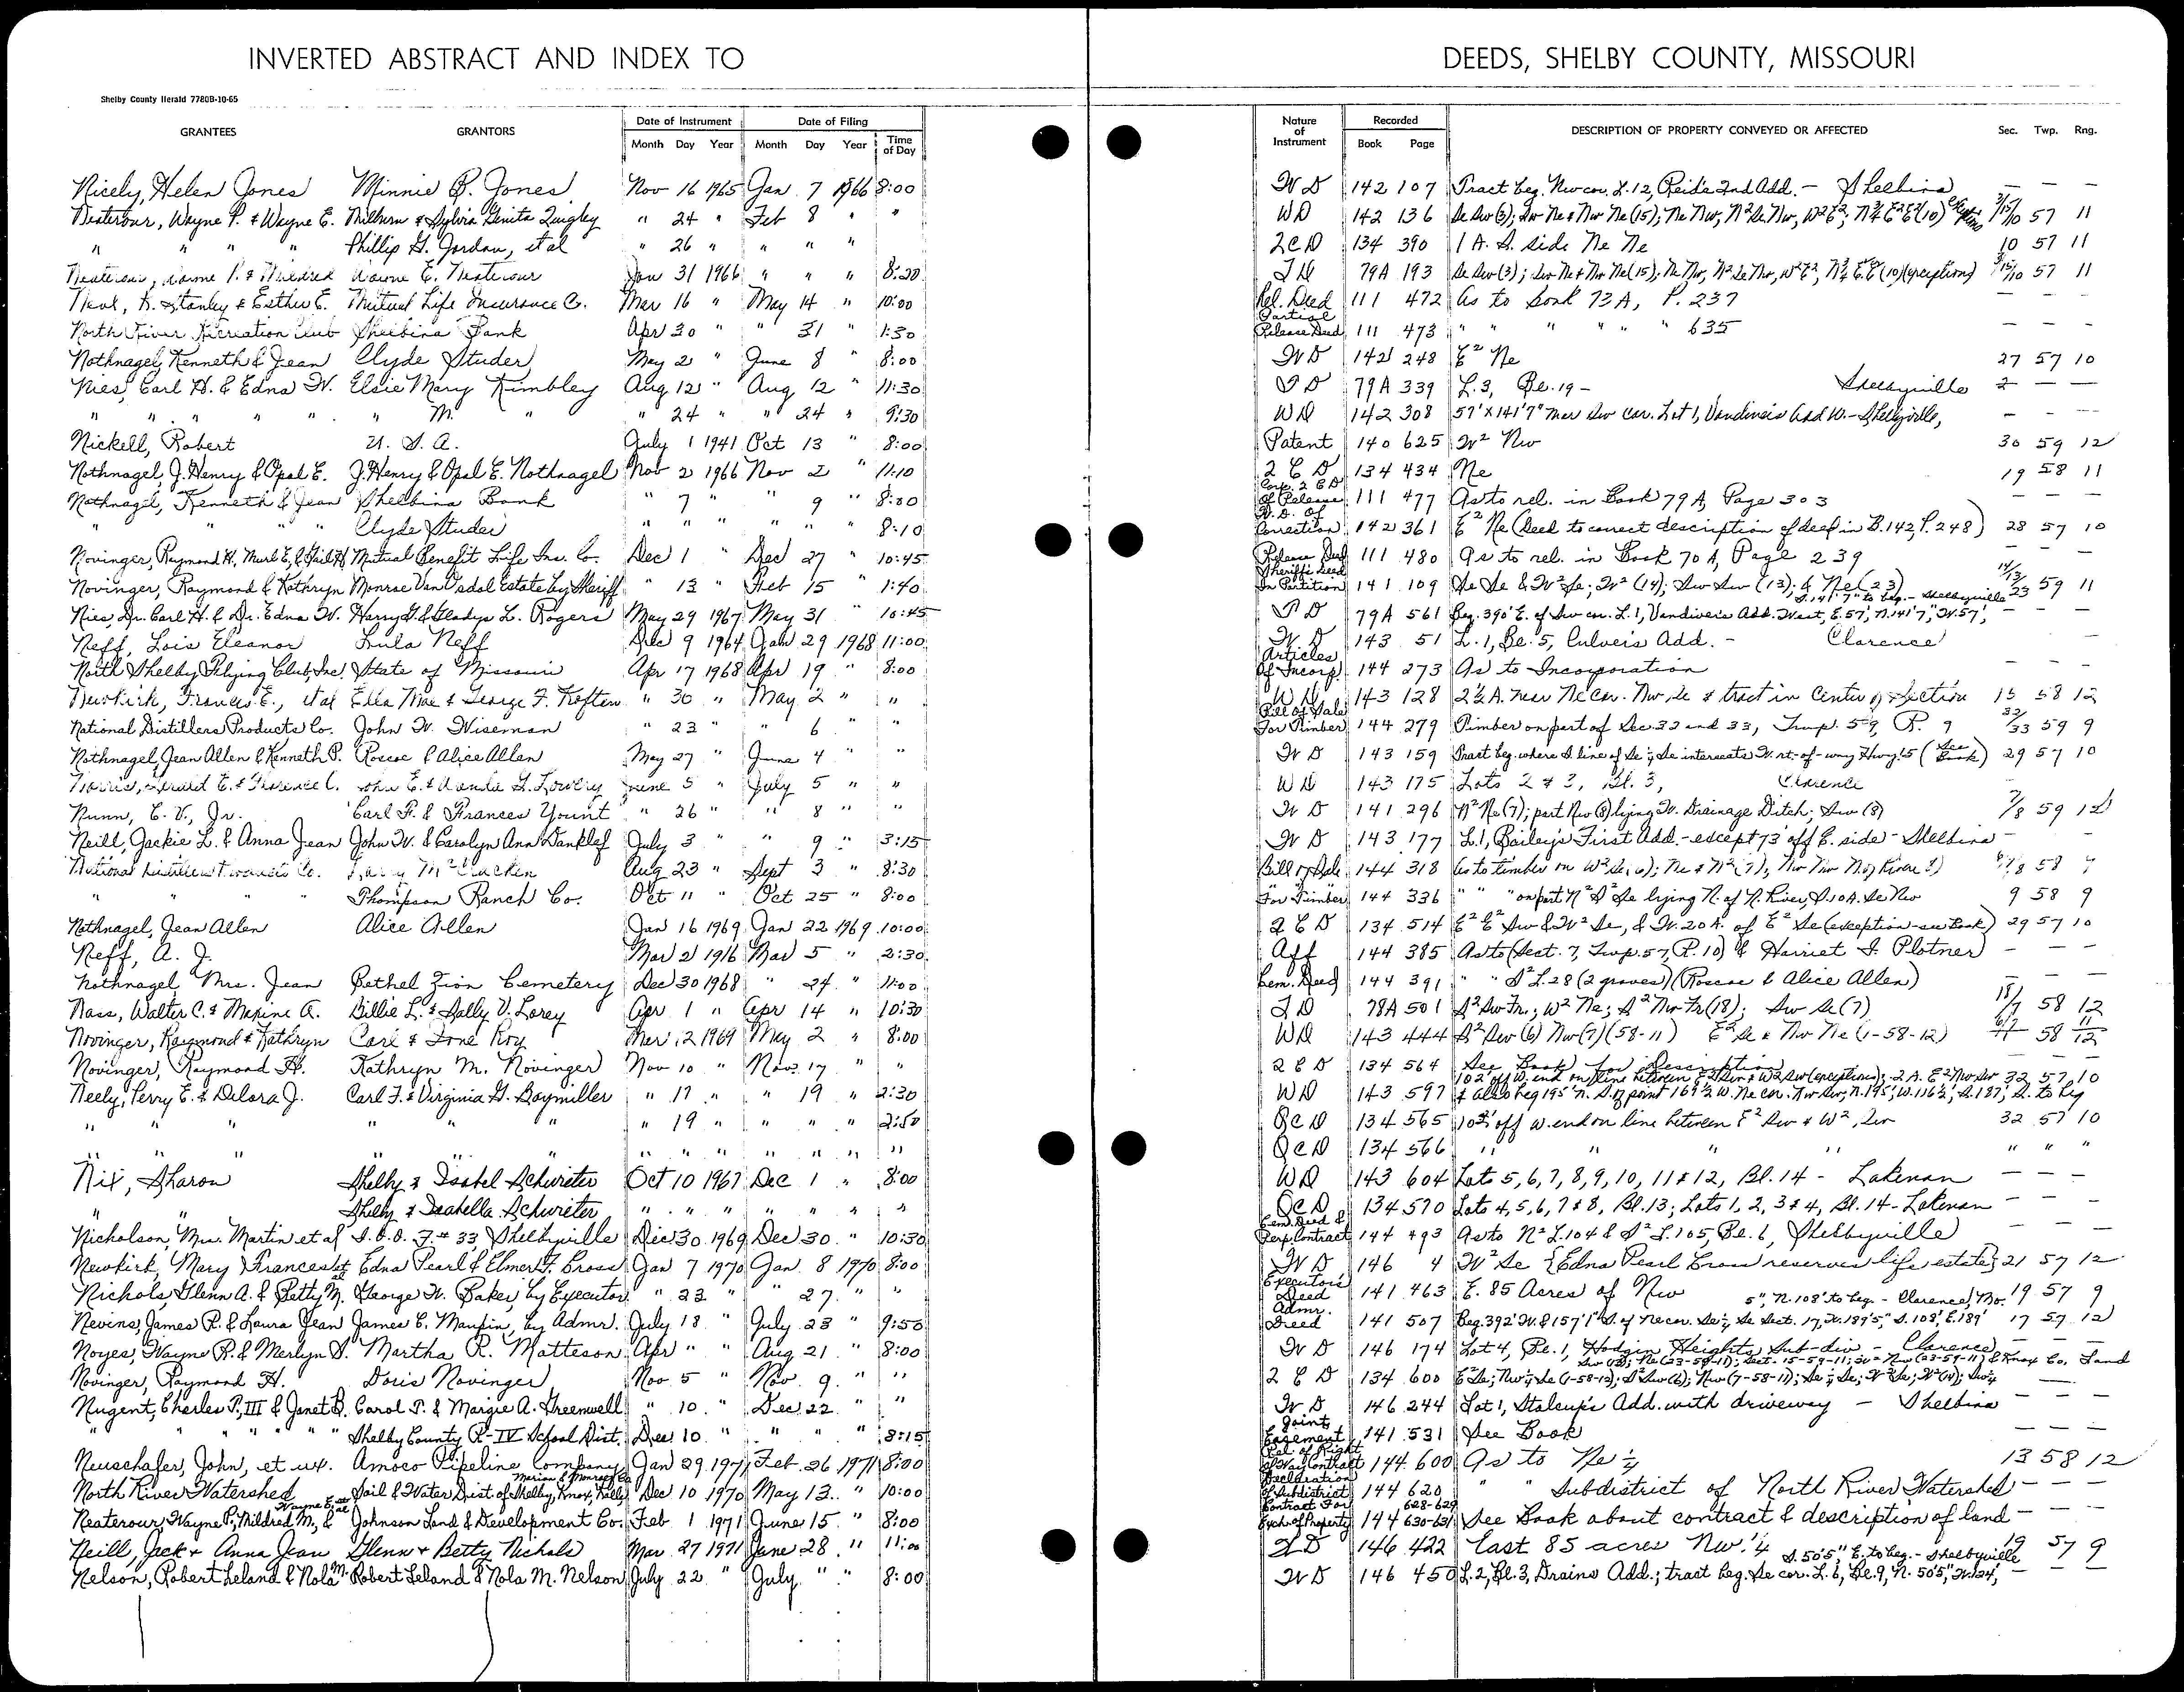 INVERTED ABSTRACT AND INDEX TO
DEEDS, SHELBY COUNTY, MISSOURI
Shelby County Herald 7780B-10-65
GRANTEES GRANTORS Date of Instrument Month Day Year Date of Filing Month Day Year Time of Day Nature of Instrument Recorded Book Page DESCRIPTION OF PROPERTY CONVEYED OR AFFECTED Sec. Twp. Rng.
Nicely, Helen Jones Minnie B. Jones Nov 16 1965 Jan 7 1966 8:00 W D 142 107 Tract beg. Nw cor. L.12, Reid's 2nd Add. - Shelbina — — —
Neaterour, Wayne P. & Wayne E. Milburn & Sylvia Genita Quigley " 24 " Feb 8 " " WD 142 136 Se Sw (3); Sw Ne & Nw Ne (15); Ne Nw, N² Se Nw, W² E², N¾ E² E² (10) 3/15/10 57 11
" " " " Phillip G. Jordan, et al " 26 " " " " 2CD 134 390 1 A. S. side Ne Ne 10 57 11
Neaterour, Wayne P. & Mildred Wayne E. Neaterour Jan 31 1966 " " " 8:20 TD 79A 193 Se Sw (3); Sw Ne & Nw Ne (15); Ne Nw, N² Se Nw, W² E², N¾ E² E² (10) (exceptions) 3/15/10 57 11
Neal, H. Stanley & Esther E. Mutual Life Insurance Co. Mar 16 " May 14 " 10:00 Rel. Deed 111 472 As to Book 73A, P. 237 — —
North River Recreation Club Shelbina Bank Apr 30 " " 31 " 1:30 Partial Release Deed 111 473 " " " " " 635 — — —
Nothnagel, Kenneth & Jean Clyde Studer May 2 " June 8 " 8:00 W D 142 248 E² Ne 27 57 10
Nies, Carl H. & Edna W. Elsie Mary Kimbley Aug 12 " Aug 12 " 11:30 TD 79A 339 L.3, Bl. 19 - Shelbyville 2 — —
" " " " " M. " " 24 " " 24 " 9:30 WD 142 308 57' X 141'7" near Sw cor. Lot 1, Vandiver's Add W. - Shelbyville, — — —
Nickell, Robert U. S. A. July 1 1941 Oct 13 " 8:00 Patent 140 625 W² Nw 30 59 12
Nothnagel, J. Henry & Opal E. J. Henry & Opal E. Nothnagel Nov 2 1966 Nov 2 " 11:10 2 C D 134 434 Ne 19 58 11
Nothnagel, Kenneth & Jean Shelbina Bank " 7 " " 9 " 8:00 Of Release 111 477 As to rel. in Book 79 A, Page 303 — —
" " " " Clyde Studer " " " " " " 8:10 W.D. Of Correction 142 361 E² Ne (Deed to correct description of deed in B. 142, P. 248) 28 57 10
Novinger, Raymond H, Murl E, & Gail H Mutual Benefit Life Ins. Co. Dec 1 " Dec 27 " 10:45 Release Deed 111 480 As to rel. in Book 70 A, Page 239 — — —
Novinger, Raymond & Kathryn Monroe VanVadal Estate by Sheriff " 13 " Feb 15 " 1:40 Sheriff's Deed In Partition 141 109 Se Se & W² Se; W² (14); Sw Sw (13); & Ne (23) 14/13/23 59 11
Nies, Dr. Carl H. & Dr. Edna W. Harry G. & Gladys L. Rogers May 29 1967 May 31 " 10:45 TD 79A 561 Beg. 390' E. of Sw cor. L.1, Vandiver's Add. West, E. 57', N. 141'7", W. 57', S. 141'7" to beg. - Shelbyville — — —
Neff, Lois Eleanor Lula Neff Dec 9 1964 Jan 29 1968 11:00 W D 143 51 L.1, Bl. 5, Culver's Add. - Clarence —
North Shelby Flying Club, Inc. State of Missouri Apr 17 1968 Apr 19 " 8:00 Articles Of Incorp. 144 273 As to Incorporation — — —
Newkirk, Frances E., et al Ella Mae & George F. Kroften " 30 " May 2 " " WD 143 128 2½ A. near Ne cor. Nw, Se & tract in Center of Section 15 58 12
National Distillers Products Co. John W. Wiseman " 23 " 6 " " Bill of Sale For Timber 144 279 Timber on part of Sec. 32 and 33, Twp. 59, R. 9 32/33 59 9
Nothnagel, Jean Allen & Kenneth P. Roscoe & Alice Allen May 27 " June 4 " " W D 143 159 Tract beg. where S. line of Se¼ Se intersects W. rt.-of-way Hwy. 15 (See Book) 29 57 10
Norris, E. & Florence C. John E. & G. Lowery June 5 " July 5 " " WD 143 175 Lots 2 & 3, Bl. 3, Clarence
Nunn, E. V., Jr. Carl F. & Frances Yount " 26 " " 8 " " W D 141 296 N² Ne (7); part Nw (8) lying W. Drainage Ditch; Sw (8) 7/8 59 12
Neill, Jackie L. & Anna Jean John W. & Carolyn Ann Danklef July 3 " " 9 " 3:15 W D 143 177 L.1, Bailey's First Add. - except 73' off E. side - Shelbina — —
National Distillers Products Co. Larry McCracken Aug 23 " Sept 3 " 8:30 Bill of Sale 144 318 As to timber on W² Se (6); Ne & N² (7), 58
" " " Thompson Ranch Co. Oct 11 " Oct 25 " 8:00 For Timber 144 336 " " " on part N² S² Se lying N. of N. River, S. 10 A. Se Nw 9 58 9
Nothnagel, Jean Allen Alice Allen Jan 16 1969 Jan 22 1969 10:00 2 C D 134 514 E² E² Sw & W² Se, & W. 20 A. of E² Se (exception - see Book) 29 57 10
Neff, A. J. Mar 2 1916 Mar 5 " 2:30 Aff 144 385 As to (Sect. 7, Twp. 57, R. 10) & Harriet I. Plotner) — — —
Nothnagel, Mrs. Jean Bethel Zion Cemetery Dec 30 1968 " 24 " 11:00 Cem. Deed 144 391 " " S² L. 28 (2 graves) (Roscoe & Alice Allen) — —
Nass, Walter C. & Maxine A. Billie L. & Sally V. Lorey Apr 1 " Apr 14 " 10:30 TD 78A 501 S² Sw Fr.; W² Ne; S² Nw Fr (18); Sw Se (7) 18/7 58 12
Novinger, Raymond & Kathryn Carl & Ione Roy Mar 12 1969 May 2 " 8:00 WD 143 444 S² Sw (6) Nw (7) (58-11) E² Se & Nw Ne (1-58-12) 6/7 58 11/12
Novinger, Raymond H. Kathryn M. Novinger Nov 10 " Nov. 17 " " 2 C D 134 564 See Book for Description — — —
Neely, Perry E. & Delora J. Carl F. & Virginia G. Baymiller " 17 " " 19 " 2:30 WD 143 597 102' off W. end on line between E² Sw & W² Sw (exceptions); 2 A. E² Nw Sw 32 57 10
& also beg 195' N. S. of point 169½ W. Ne cor. Nw Sw, N. 195', W. 116½', S. 187', E. to beg
" " " " " 19 " " " " 2:50 QCD 134 565 102' off W. end on line between E² Sw & W², Sw 32 57 10
" " " " " " " " " " " QCD 134 566 " " " " " " "
Nix, Sharon Shelby & Isabel Schwieter Oct 10 1967 Dec 1 " 8:00 WD 143 604 Lots 5, 6, 7, 8, 9, 10, 11 & 12, Bl. 14 - Lakenan — — —
" " Shelby & Isabella Schwieter " " " " " " " QCD 134 570 Lots 4, 5, 6, 7 & 8, Bl. 13; Lots 1, 2, 3 & 4, Bl. 14 - Lakenan — — —
Nicholson, Mrs. Martin et al I. O. O. F. # 33, Shelbyville Dec 30 1969 Dec 30 " 10:30 Cem. Deed & Perp. Contract 144 493 As to N² L. 104 & S² L. 105, Bl. 6, Shelbyville — — —
Newkirk, Mary Frances et al Edna Pearl & Elmer F. Cross Jan 7 1970 Jan. 8 1970 8:00 W D 146 4 W² Se {Edna Pearl Cross reserves life estate} 21 57 12
Nichols, Glenn A. & Betty M. George W. Baker, by Executor " 23 " " 27 " " Executor's Deed 141 463 E. 85 Acres of Nw 19 57 9
Nevins, James R. & Laura Jean James E. Maupin, by Admr. July 18 " July 23 " 9:50 Admr. Deed 141 507 Beg. 392' W. & 157'1" S. of Ne cor. Se¼ Se Sect. 17, W. 189'5", S. 108', E. 189' 5", N. 108' to beg. - Clarence, Mo. 17 57 12
Noyes, Wayne R. & Merlyn S. Martha R. Matteson Apr " " Aug 21 " 8:00 W D 146 174 Lot 4, Bl. 1, Hodgin Heights Sub-div - Clarence — —
Novinger, Raymond H. Doris Novinger Nov. 5 " Nov. 9 " " 2 C D 134 600 E² Se; Nw¼ Se (1-58-12); S² Sw (6); Nw (7-58-11); Se¼ Se; W² Se; W² (14); Sw¼ & Knox Co. Land
Nugent, Charles P., III & Janet B. Carol P. & Margie A. Greenwell " 10 " Dec. 22 " " W D 146 244 Lot 1, Stalcup's Add. with driveway — Shelbina — — —
" " " " " Shelby County R-IV School Dist. Dec. 10 " " " " 8:15 Joint Easement 141 531 See Book — — —
Neuschafer, John, et ux. Amoco Pipeline Company Jan 29 1971 Feb. 26 1971 8:00 Rel. of Right Of Way Contract 144 600 As to Ne¼ 13 58 12
North River Watershed Soil & Water Dist. of Shelby, Knox, Ralls Marion & Monroe Co Dec 10 1970 May 13 " 10:00 Declaration Of Subdistrict 144 620 " " Subdistrict of North River Watershed — — —
Neaterour, Wayne P., Mildred M., & Wayne E, et al Johnson Land & Development Co. Feb 1 1971 June 15 " 8:00 Contract For Exch. of Property 144 628-629 630-631 See Book about contract & description of land — — —
Neill, Jack & Anna Jean Glenn & Betty Nichols Mar 27 1971 June 28 " 11:00 WD 146 422 East 85 acres Nw¼ 19 57 9
Nelson, Robert Leland & Nola M. Robert Leland & Nola M. Nelson July 22 " July " " 8:00 W D 146 450 L. 2, Bl. 3, Drains Add.; tract beg. Se cor. L. 6, Bl. 9, N. 50'5", W. 124', S. 50'5", E. to beg. - Shelbyville — — —